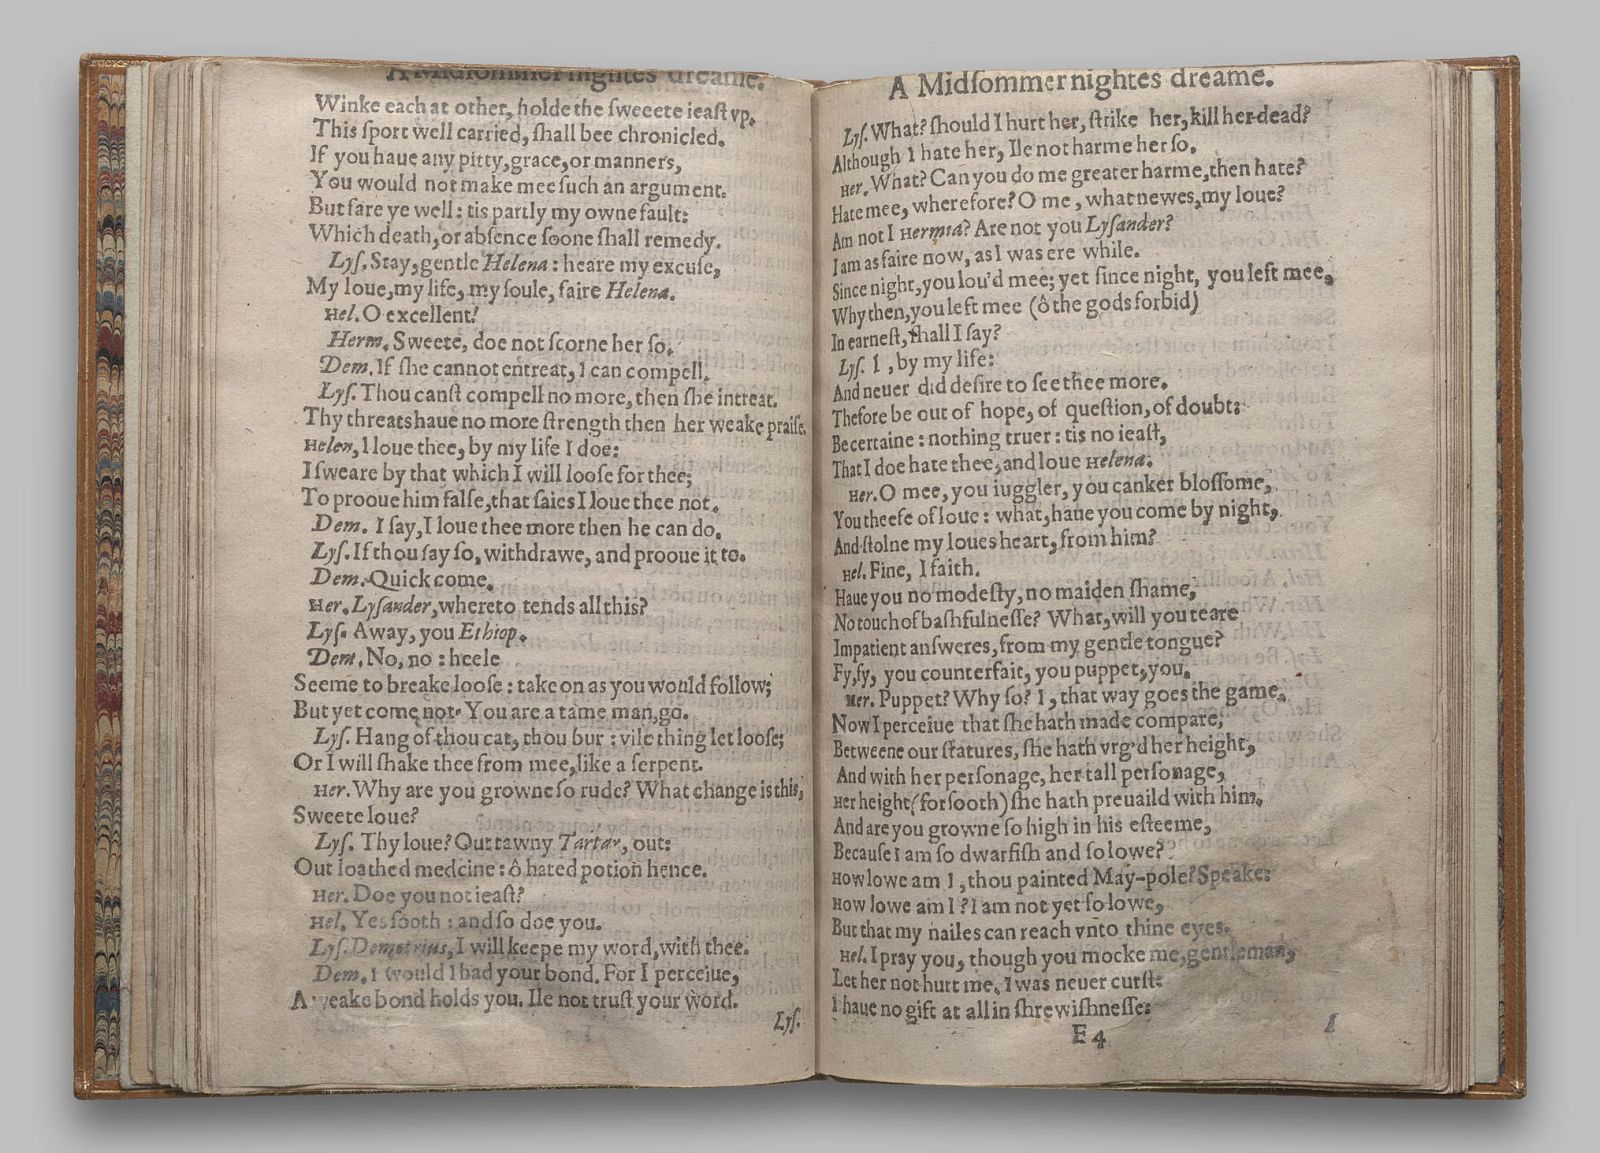 A Midſommer nightes dreame.
Winke each at other, holde the ſweeete ieaſt vp.
This ſport well carried, ſhall bee chronicled.
If you haue any pitty, grace, or manners,
You would not make mee ſuch an argument.
But fare ye well: tis partly my owne fault:
Which death, or abſence ſoone ſhall remedy.
Lyſ. Stay, gentle Helena: heare my excuſe,
My loue, my life, my ſoule, faire Helena.
Hel. O excellent!
Herm. Sweete, doe not ſcorne her ſo.
Dem. If ſhe cannot entreat, I can compell.
Lyſ. Thou canſt compell no more, then ſhe intreat.
Thy threats haue no more ſtrength then her weake praiſe.
Helen, I loue thee, by my life I doe:
I ſweare by that which I will looſe for thee;
To prooue him falſe, that ſaies I loue thee not.
Dem. I ſay, I loue thee more then he can do.
Lyſ. If thou ſay ſo, withdrawe, and prooue it to.
Dem. Quick come.
Her. Lyſander, whereto tends all this?
Lyſ. Away, you Ethiop.
Dem. No, no: heele
Seeme to breake looſe: take on as you would follow;
But yet come not. You are a tame man, go.
Lyſ. Hang of thou cat, thou bur: vile thing let looſe;
Or I will ſhake thee from mee, like a ſerpent.
Her. Why are you growne ſo rude? What change is this,
Sweete loue?
Lyſ. Thy loue? Out tawny Tartar, out:
Out loathed medcine: ô hated potion hence.
Her. Doe you not ieaſt?
Hel. Yes ſooth: and ſo doe you.
Lyſ. Demetrius, I will keepe my word, with thee.
Dem. I would I had your bond. For I perceiue,
A weake bond holds you. Ile not truſt your word.
Lyſ.
A Midſommer nightes dreame.
Lyſ. What? ſhould I hurt her, ſtrike her, kill her dead?
Although I hate her, Ile not harme her ſo.
Her. What? Can you do me greater harme, then hate?
Hate mee, wherefore? O me, what newes, my loue?
Am not I Hermia? Are not you Lyſander?
I am as faire now, as I was ere while.
Since night, you lou'd mee; yet ſince night, you left mee.
Why then, you left mee (ô the gods forbid)
In earneſt, ſhall I ſay?
Lyſ. I, by my life:
And neuer did deſire to ſee thee more.
Thefore be out of hope, of queſtion, of doubt:
Be certaine: nothing truer: tis no ieaſt,
That I doe hate thee, and loue Helena.
Her. O mee, you iuggler, you canker bloſſome,
You theefe of loue: what, haue you come by night,
And ſtolne my loues heart, from him?
Hel. Fine, I faith.
Haue you no modeſty, no maiden ſhame,
No touch of baſhfulneſſe? What, will you teare
Impatient anſweres, from my gentle tongue?
Fy, fy, you counterfait, you puppet, you.
Her. Puppet? Why ſo? I, that way goes the game.
Now I perceiue that ſhe hath made compare,
Betweene our ſtatures, ſhe hath vrg'd her height,
And with her perſonage, her tall perſonage,
Her height (forſooth) ſhe hath preuaild with him.
And are you growne ſo high in his eſteeme,
Becauſe I am ſo dwarfiſh and ſo lowe?
How lowe am I, thou painted May-pole? Speake:
How lowe am I? I am not yet ſo lowe,
But that my nailes can reach vnto thine eyes.
Hel. I pray you, though you mocke me, gentleman,
Let her not hurt me. I was neuer curſt:
I haue no gift at all in ſhrewiſhneſſe:
E4 I